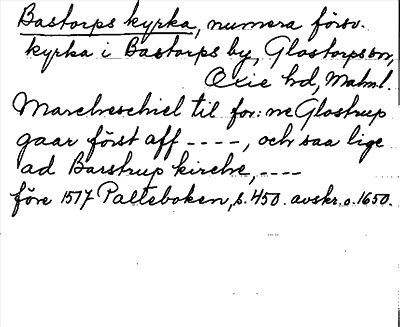 Bastorps kyrka, numera försv.
kyrka i Bastorps by, Glostorps sn,
Oxie hd, Malml.
Marcheschiel til for:ne Glostrup
gaar först aff ----, och saa lige
ad Barstrup kirche, ----
före 1517 Palteboken, s. 450. avskr. o. 1650.